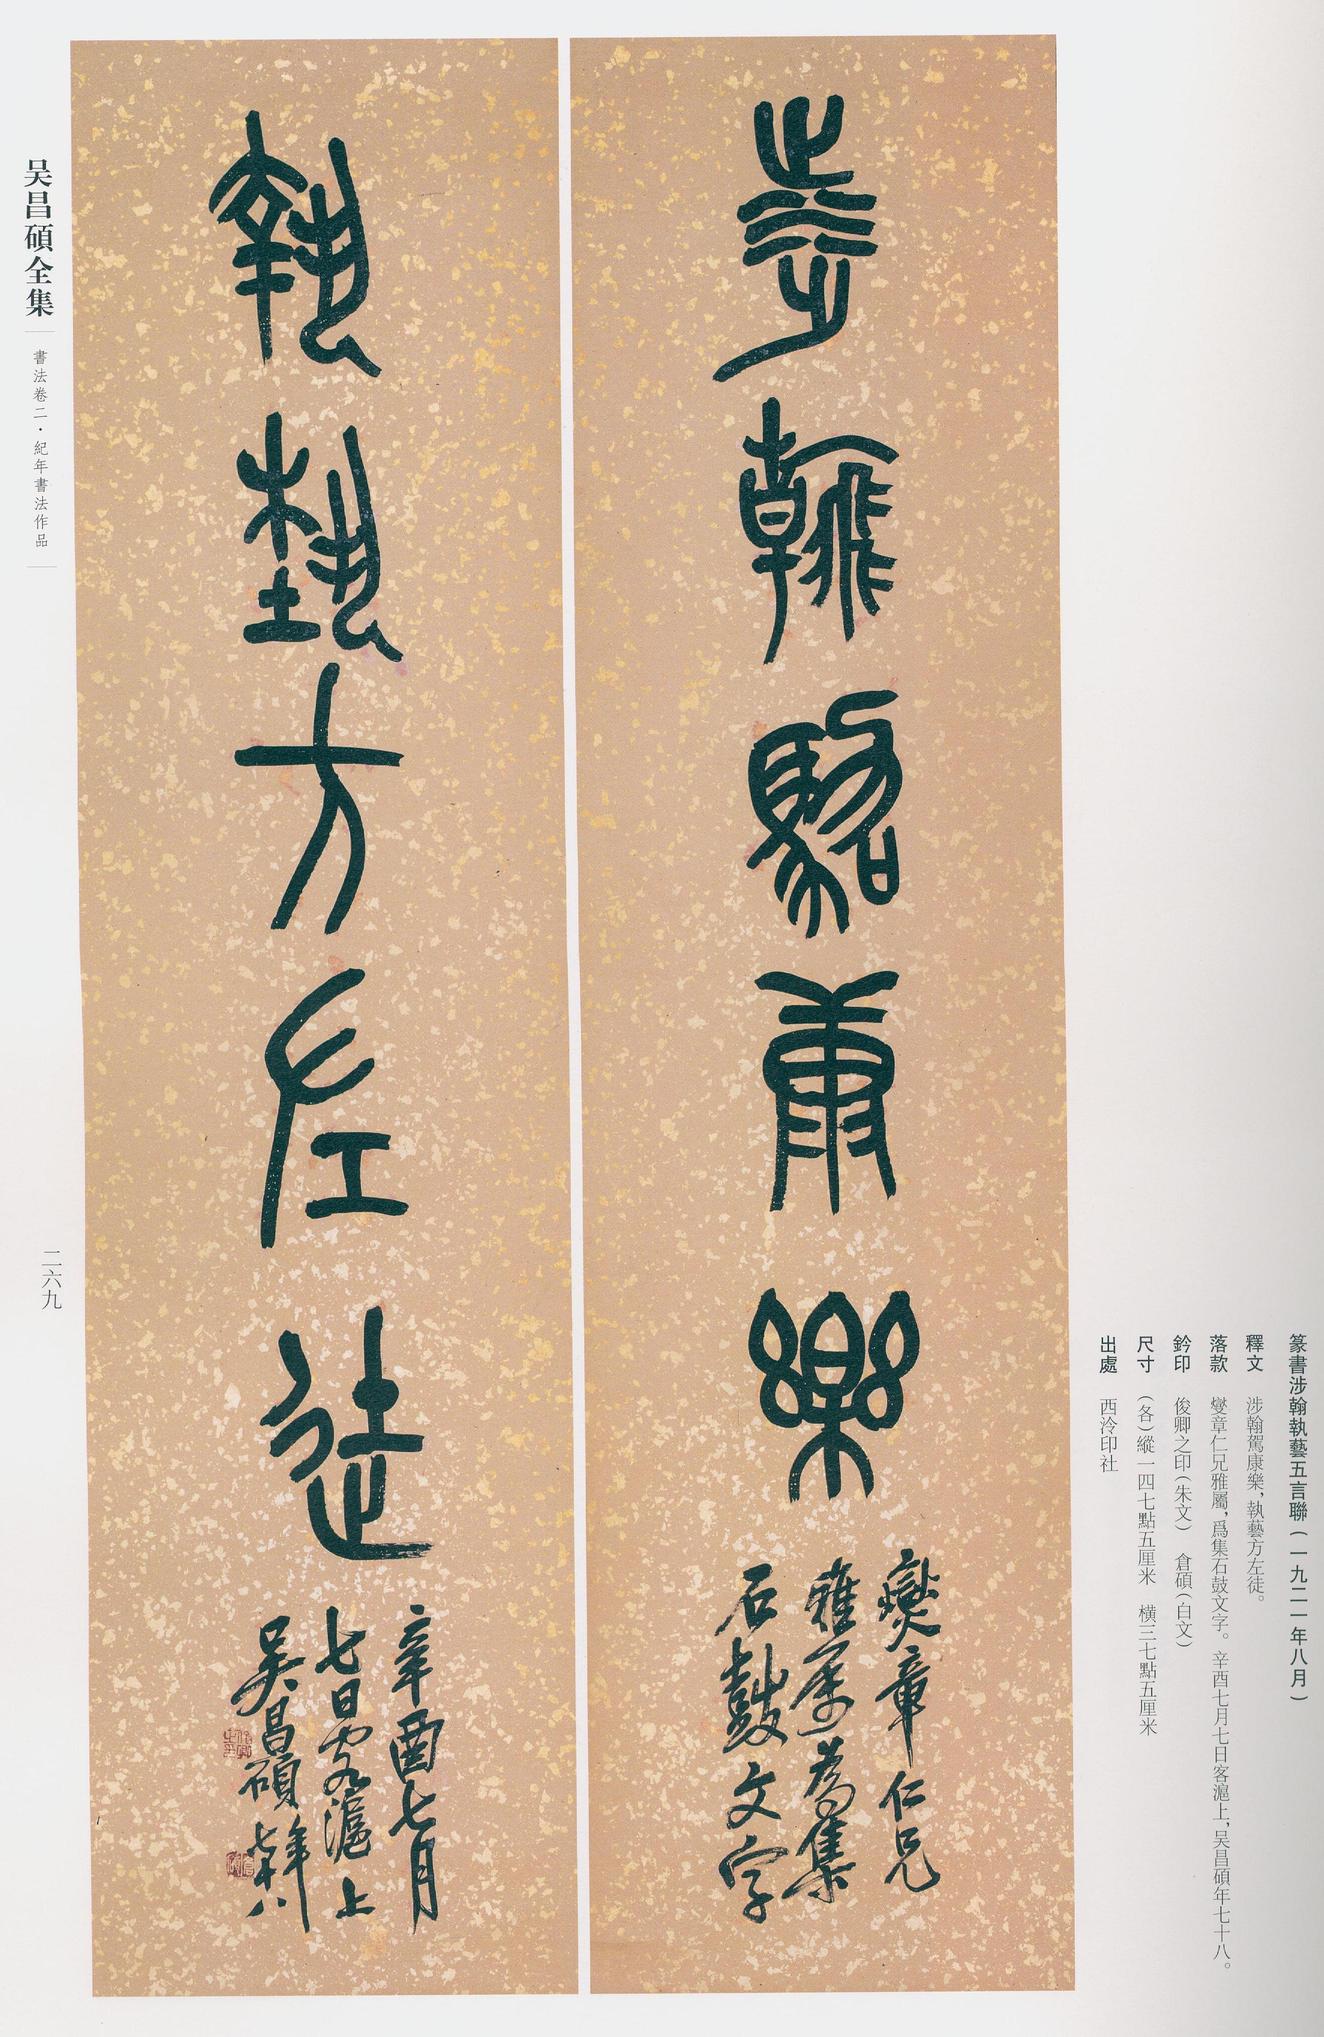 涉翰駕康樂
燮章仁兄
雅屬爲集
石鼓文字
執藝方左徒
辛酉七月
七日客滬上
吴昌碩年七十八
篆書涉翰執藝五言聯（一九二一年八月）
釋文　涉翰駕康樂，執藝方左徒。
落款　燮章仁兄雅屬，爲集石鼓文字。辛酉七月七日客滬上，吴昌碩年七十八。
鈐印　俊卿之印（朱文）　倉碩（白文）
尺寸　（各）縱一四七點五厘米　橫三七點五厘米
出處　西泠印社
吴昌碩全集
書法卷二·紀年書法作品
二六九